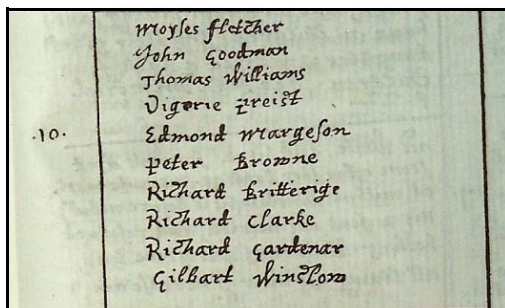 Moyses fletcher
John Goodman
Thomas Williams
Digerie Preist
·10· Edmond Margeson
Peter Browne
Richard Britterige
Richard Clarke
Richard Gardenar
Gilbart Winslow